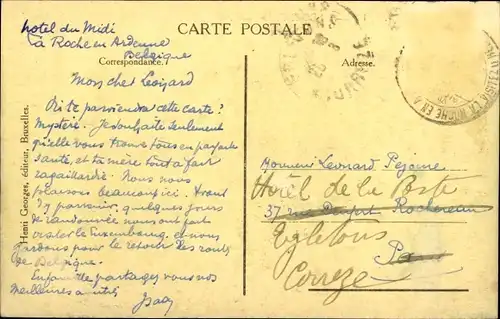 hotel du Midi
à Roche en Ardenne
Belgique
CARTE POSTALE
Correspondance.
Adresse.
Mon cher Léonard
Où te parviendra cette carte ?
Mystère. Je souhaite seulement
qu'elle vous trouve tous en parfaite
santé, et ta mère tout à fait
ragaillardie. Nous nous
plaisons beaucoup ici. Avant
d'y parvenir, quelques jours
de randonnée nous ont fait
visiter le Luxembourg, et nous
gardons pour le retour les
de Belgique.
En famille partagez vous nos
meilleures amitiés
Henri Georges, éditeur, Bruxelles.
Monsieur Léonard
Hôtel de la Poste
37 rue Denfert Rochereau
Egletons
Corrèze